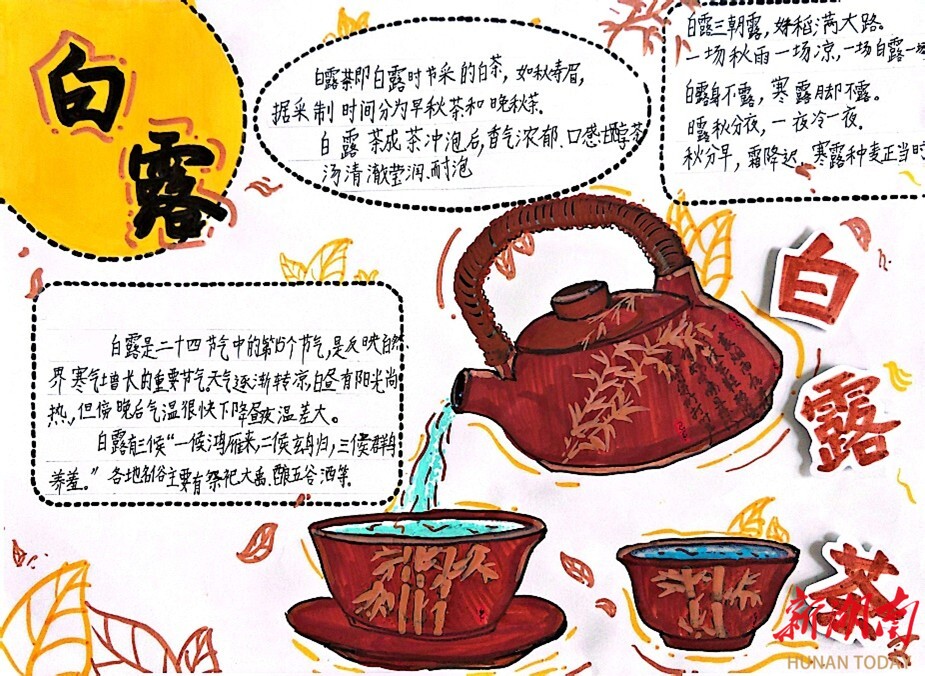 白
露
白露茶即白露时节采的白茶，如秋寿眉，
据采制时间分为早秋茶和晚秋茶。
白露茶成茶冲泡后，香气浓郁.口感甘醇茶
汤清澈莹润.耐泡
白露三朝露，好稻满大路。
一场秋雨一场凉，一场白露一场
白露身不露，寒露脚不露。
曙秋分夜，一夜冷一夜。
秋分早，霜降迟，寒露种麦正当时
白露是二十四节气中的第15个节气，是反映自然
界寒气增长的重要节气天气逐渐转凉，白昼有阳光尚
热，但傍晚后气温很快下降昼夜温差大。
白露有三候“一候鸿雁来，二候玄鸟归，三候群鸟
养羞。”各地名俗主要有祭祀大禹.酿五谷酒等.
白
露
茶
新湖南
HUNAN TODAY